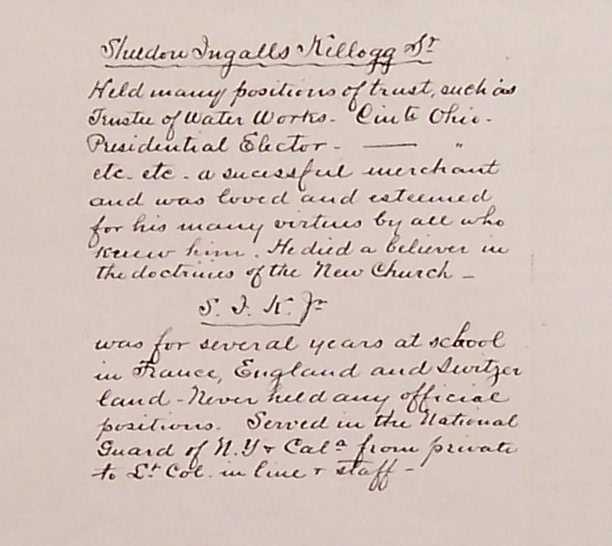 Sheldon Ingalls Killogg Sr
Held many positions of trust, such as
Trustee of Water Works - Cinti Ohio -
Presidential Elector - — "
etc. etc. a sucessful merchant
and was loved and esteemed
for his many virtues by all who
knew him. He died a believer in
the doctrines of the New Church -
S. I. K. Jr
was for several years at school
in France, England and Switzer
land - Never held any official
positions. Served in the National
Guard of N.Y & Cala from private
to Lt Col. in line & staff -